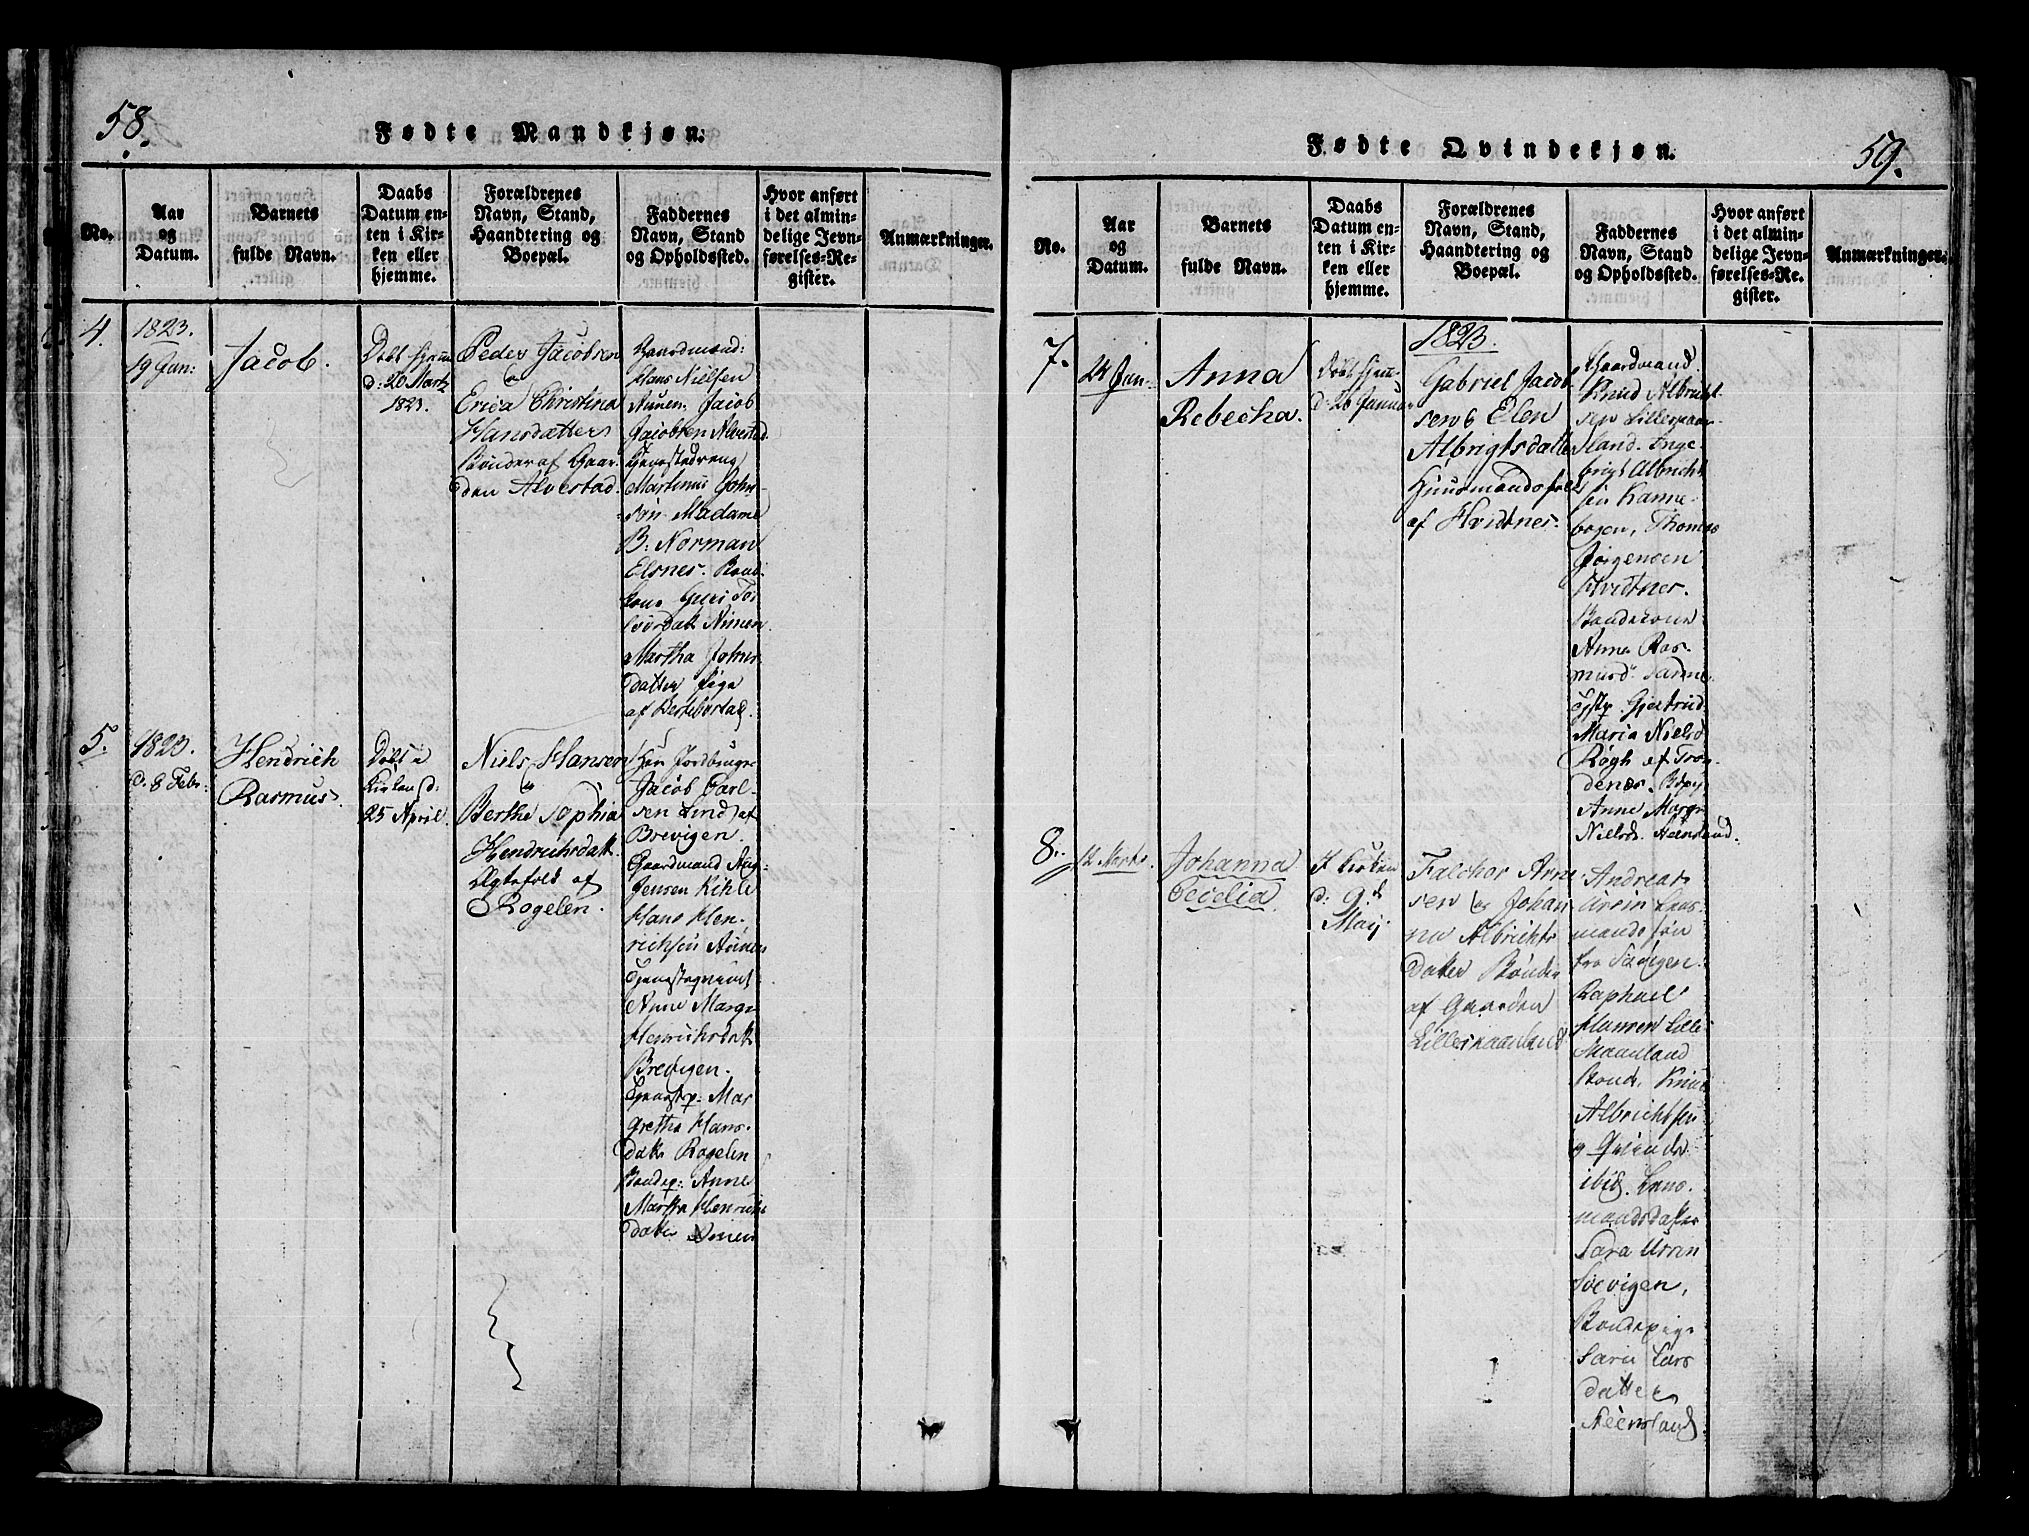 58.
Fødte Mandkjøn.
No.
Aar
og
Datum.
Barnets
fulde Navn.
Daabs
Datum en-
ten i Kir-
ken eller
hjemme.
Forældrenes
Navn, Stand,
Haandtering og
Boepæl.
Faddernes
Navn, Stand
og Opholdssted.
Hvor anført
i det almin-
delige Jevn-
førelses-Re-
gister.
Anmærkninger.
4.
1823.
19 Jan:
Jacob.
Døbt hjem
d: 20 Martz
1823.
Peder Jacobsen
Erica Christina
Hansdatter
Bønder af Gaar
den Alvestad.
Gaardmand:
Hans Nielsen
Aunen. Jacob
Jacobsen Alvestad.
Tjenestedreng
Martinus John-
søn. Madame
B: Norman
Elsnes. Bond.
kone Guri To
Martha Johns
datter pige
af
5.
1823.
d. 8 Febr:
Hendrich
Rasmus.
Døbt i
Kirken d:
25 April.
Niels Hansen
Berthe Sophia
Hendrichsdatt.
Ægtefolk af
Rogelen.
Jordbruger
Jacob Carl-
sen Lind af
Brevigen.
Gaardmand
Jensen Kihle
Hans Hen,
richsen Aunen
Anne Margr
Henrichsdatt
Bredigen.
Tjenestp: Mar
gretha Hans-
datr Rogelen
Bondep: Anne
Martha Henrichs
datter
59.
Fødte Qvindekjøn.
No.
Aar
og
Datum.
Barnets
fulde Navn.
Daabs
Datum en-
ten i Kir-
ken eller
hjemme.
Forældrenes
Navn, Stand,
Haandtering og
Boepæl.
Faddernes
Navn, Stand
og Opholdssted.
Hvor anført
i det almin-
delige Jevn-
førelses-Re-
gister.
Anmærkninger.
7.
24 Jan.
Anna
Rebecha.
Døbt hjem
d: 26 Januar
1823.
Gabriel Jacob
sen & Elen
Albrigtsdatter
Huusmandsfolk
af Hvidtnes.
Gaardmand.
Knud Albrecht
sen Lillemaan
land. Inge
brigt Albrecht
sen Kanne-
bogen, Thomas
Jørgensen
Hvidtnes.
Bondekone
Anne Ras
Gjertrud
Maria Nielsd
Røgh af Tron
denæs.
Anne Margr
Nielsd.
8.
12 Marts.
Johanna
Cecelia.
I Kirken
d: 9de
Maij
Falchor Arne
sen og Johan
na Albrichts
datter Bønder
af Gaarden
Lillemaanland.
Andreas
mandssøn
fra
Raphael
Hansen Lille
Maanland
Bond. Knud
Albrichtsen
ibid.
mandsdatter
Sara
Sørvigen,
Bondepige
Lars
datter